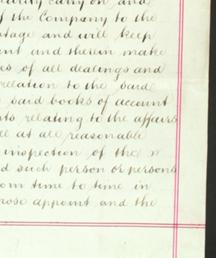 carry on and
of the Company to the
and will keep
and therein make
of all dealings and
relation to the said
said books of account
relating to the affairs
at all reasonable
inspection of the
such person or persons
from time to time in
appoint and the